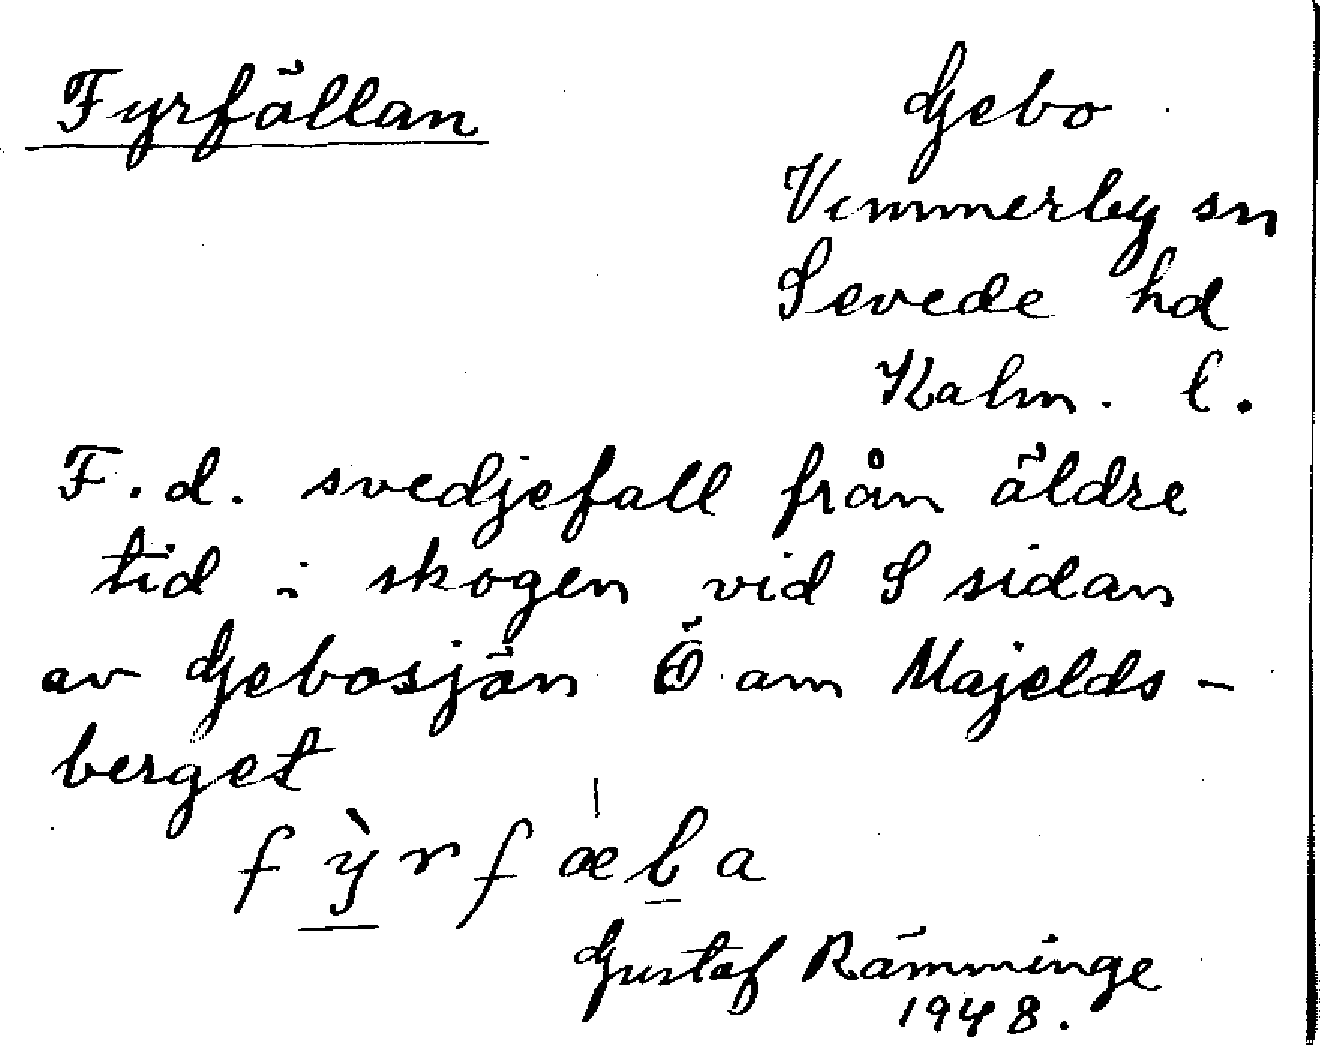 Fyrfällan
Gebo
Vimmerby sn
Sevede hd
Kalm. l.
F.d. svedjefall från äldre
tid i skogen vid S sidan
av Gebosjön Ö om Majelds-
berget
fỳrfæ̍l̲a
Gustaf Rämminge
1948.